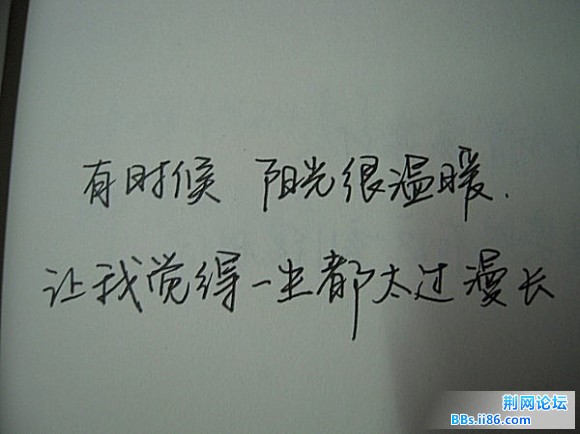 有时候 阳光很温暖.
让我觉得一生都太过漫长
荆网论坛
BBs.ii86.com